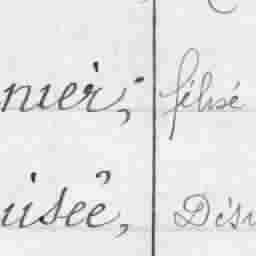 nier, félisé
uisée, Dési